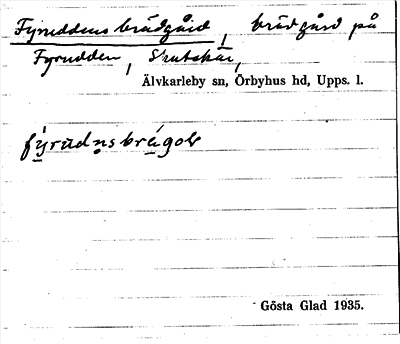 Fyruddens brädgård, brädgård på
Fyrudden, Skutskär,
Älvkarleby sn, Örbyhus hd, Upps. l.
fýrudnsbrágoḷ
Gösta Glad 1935.